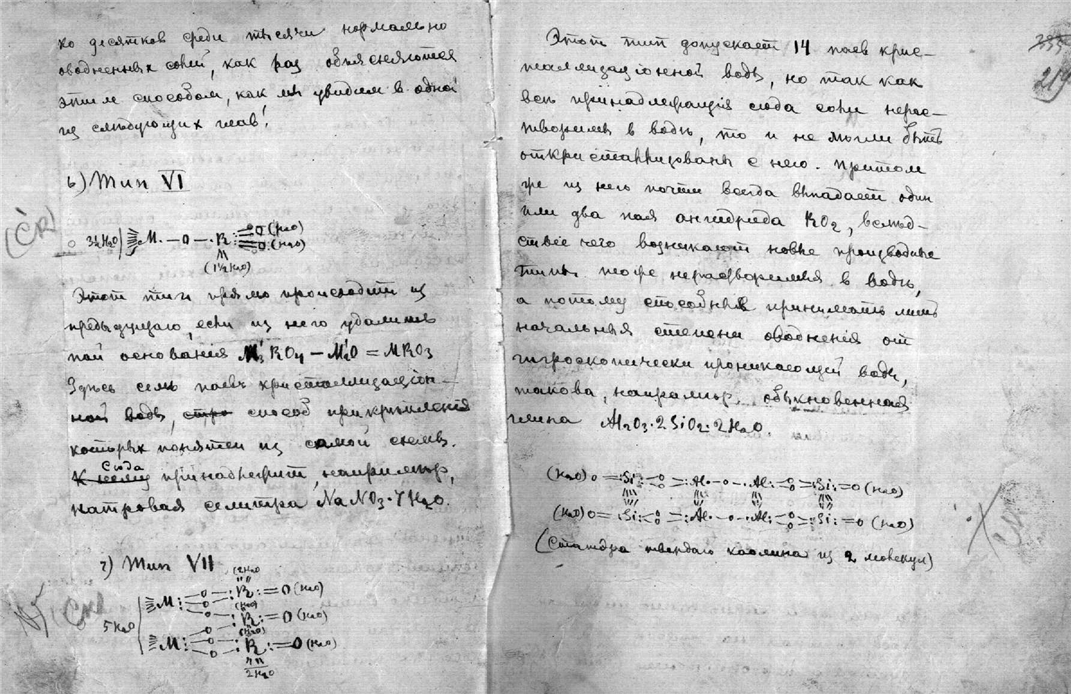 ко десятков среди тысячи нормально
оводненных солей, как раз объясняются
этим способом, как мы увидим в одной
из слѣдующих глав.
в) Тип VI
(СК)
3½H₂O M·—O—·R O(H₂O) O(H₂O)
(1½H₂O)
Этот тип прямо происходит из
предыдущаго, если из него удалить
пай основанія M₃'RO₄ — M₂'O = MRO₃
Здѣсь семь паевъ кристаллизаціон-
ной воды, способ прикрѣпленія
которых понятен из самой схемы.
Сюда принадлежит, например,
натровая селитра NaNO₃·7H₂O.
г) Тип VII
(2H₂O)
M: O O :R=O(H₂O)
(H₂O)
5H₂O O :R=O(H₂O)
(H₂O)
M: O O :R=O(H₂O)
2H₂O
219
Этот тип допускает 14 паев крис-
таллизаціонной воды, но так как
всѣ принадлежащія сюда соли нерас-
творимы в водѣ, то и не могли быть
откристаллизованы с него. Притом
же из него почти всегда выпадает один
или два пая ангидрида RO₂, вслѣд-
ствіе чего возникают новые производные
типы тоже нерастворимыя в водѣ,
а потому способныя принимать лишь
начальныя степени оводненія от
гигроскопически проникающей воды,
такова, например, обыкновенная
глина Al₂O₃·2SiO₂·2H₂O.
(H₂O)O=:Si: O O :Al·—O—·Al: O O :Si:=O(H₂O)
(H₂O)O=:Si: O O :Al·—O—·Al: O O :Si:=O(H₂O)
(Стадия твердаго каолина из 2 молекул)